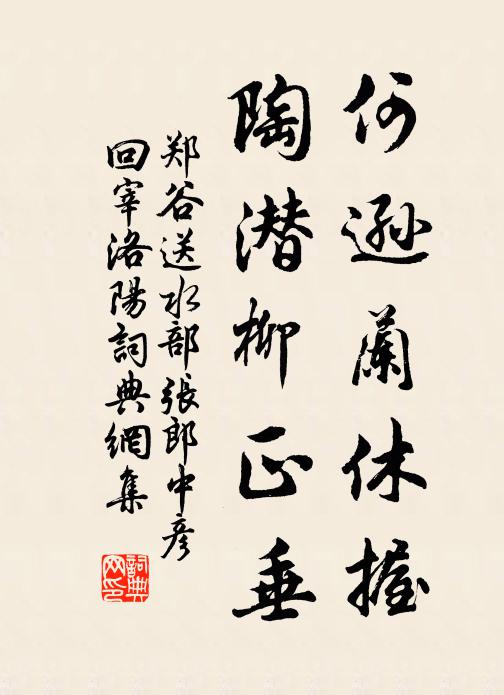 何逊蘭休握
陶潜柳正垂
郑谷送水部張郎中彦
回宰洛陽詞典網集
詞典网印